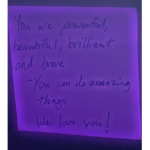 You are powerful,
beautiful, brilliant
and brave
- You can do amazing
things
We love you!